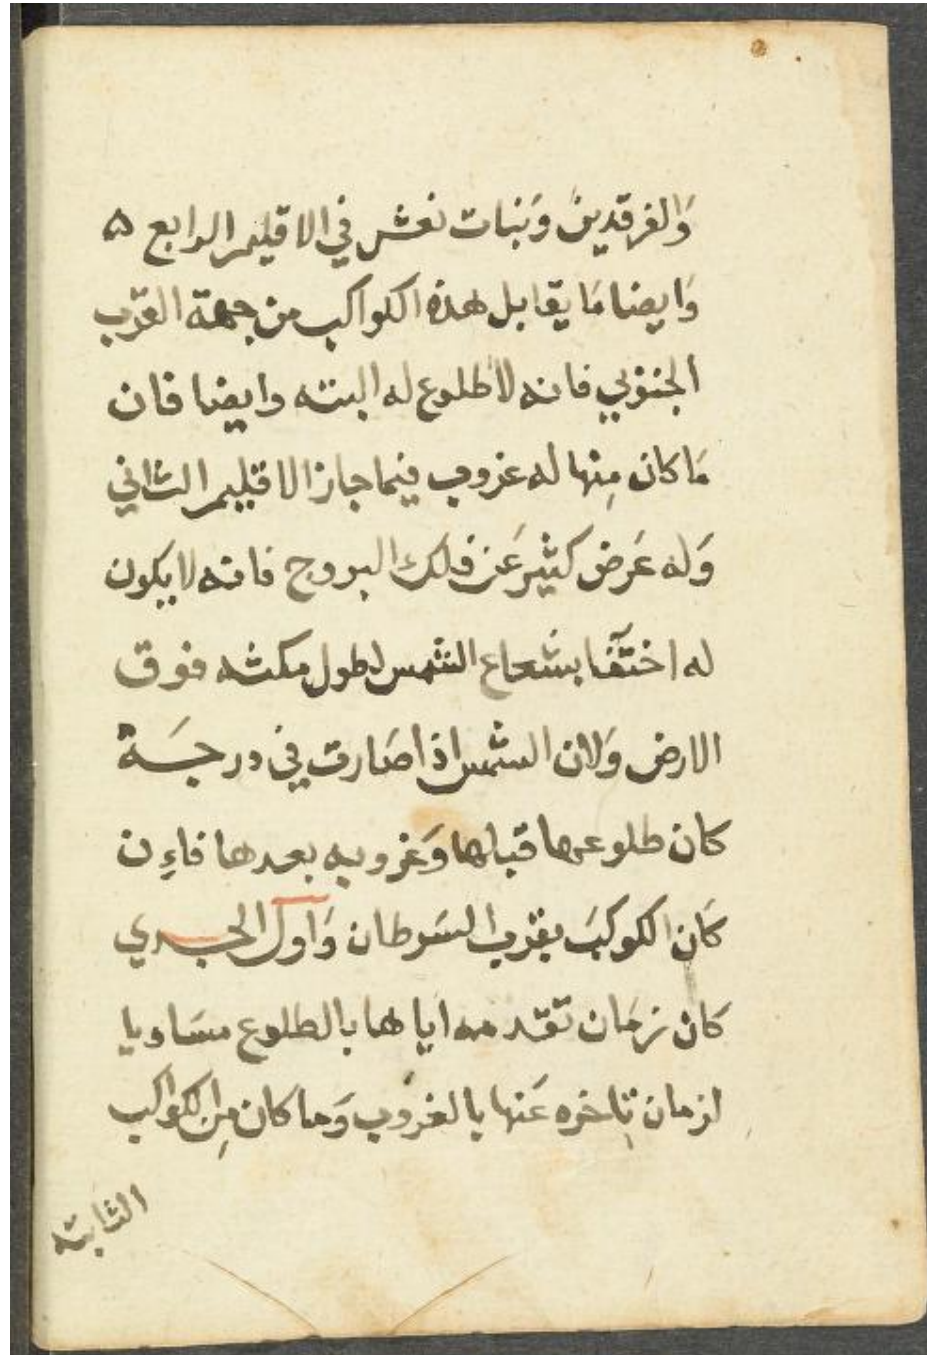 وَالفرقدينً وَبَنات نعش في الاقليم الرابع ۵
وَايضا مَا يقابل هذه الكواكب من جهة القرب
الجنوبي فانه لا طلوع له البته وايضا فان
مَا كان مِنها له غروب فيما جاز الاقليم الثاني
وَله عَرض كثير عَن فلك البروج فانه لا يكون
له اختفآ بشعاع الشمس لطول مكثه فوق
الارض وَلان الشمس اذا صَارت في درجَة
كان طلوعها قبلها وَغروبه بعدها فاءِن
كَان الكوكبَ بقرب السَرطان وَاول الجدي
كان زمَان تقدمه اياها بالطلوع مسَاويا
لزمان تِاخره عَنها بالغروب وَما كان مِن الكواكب
الثابته